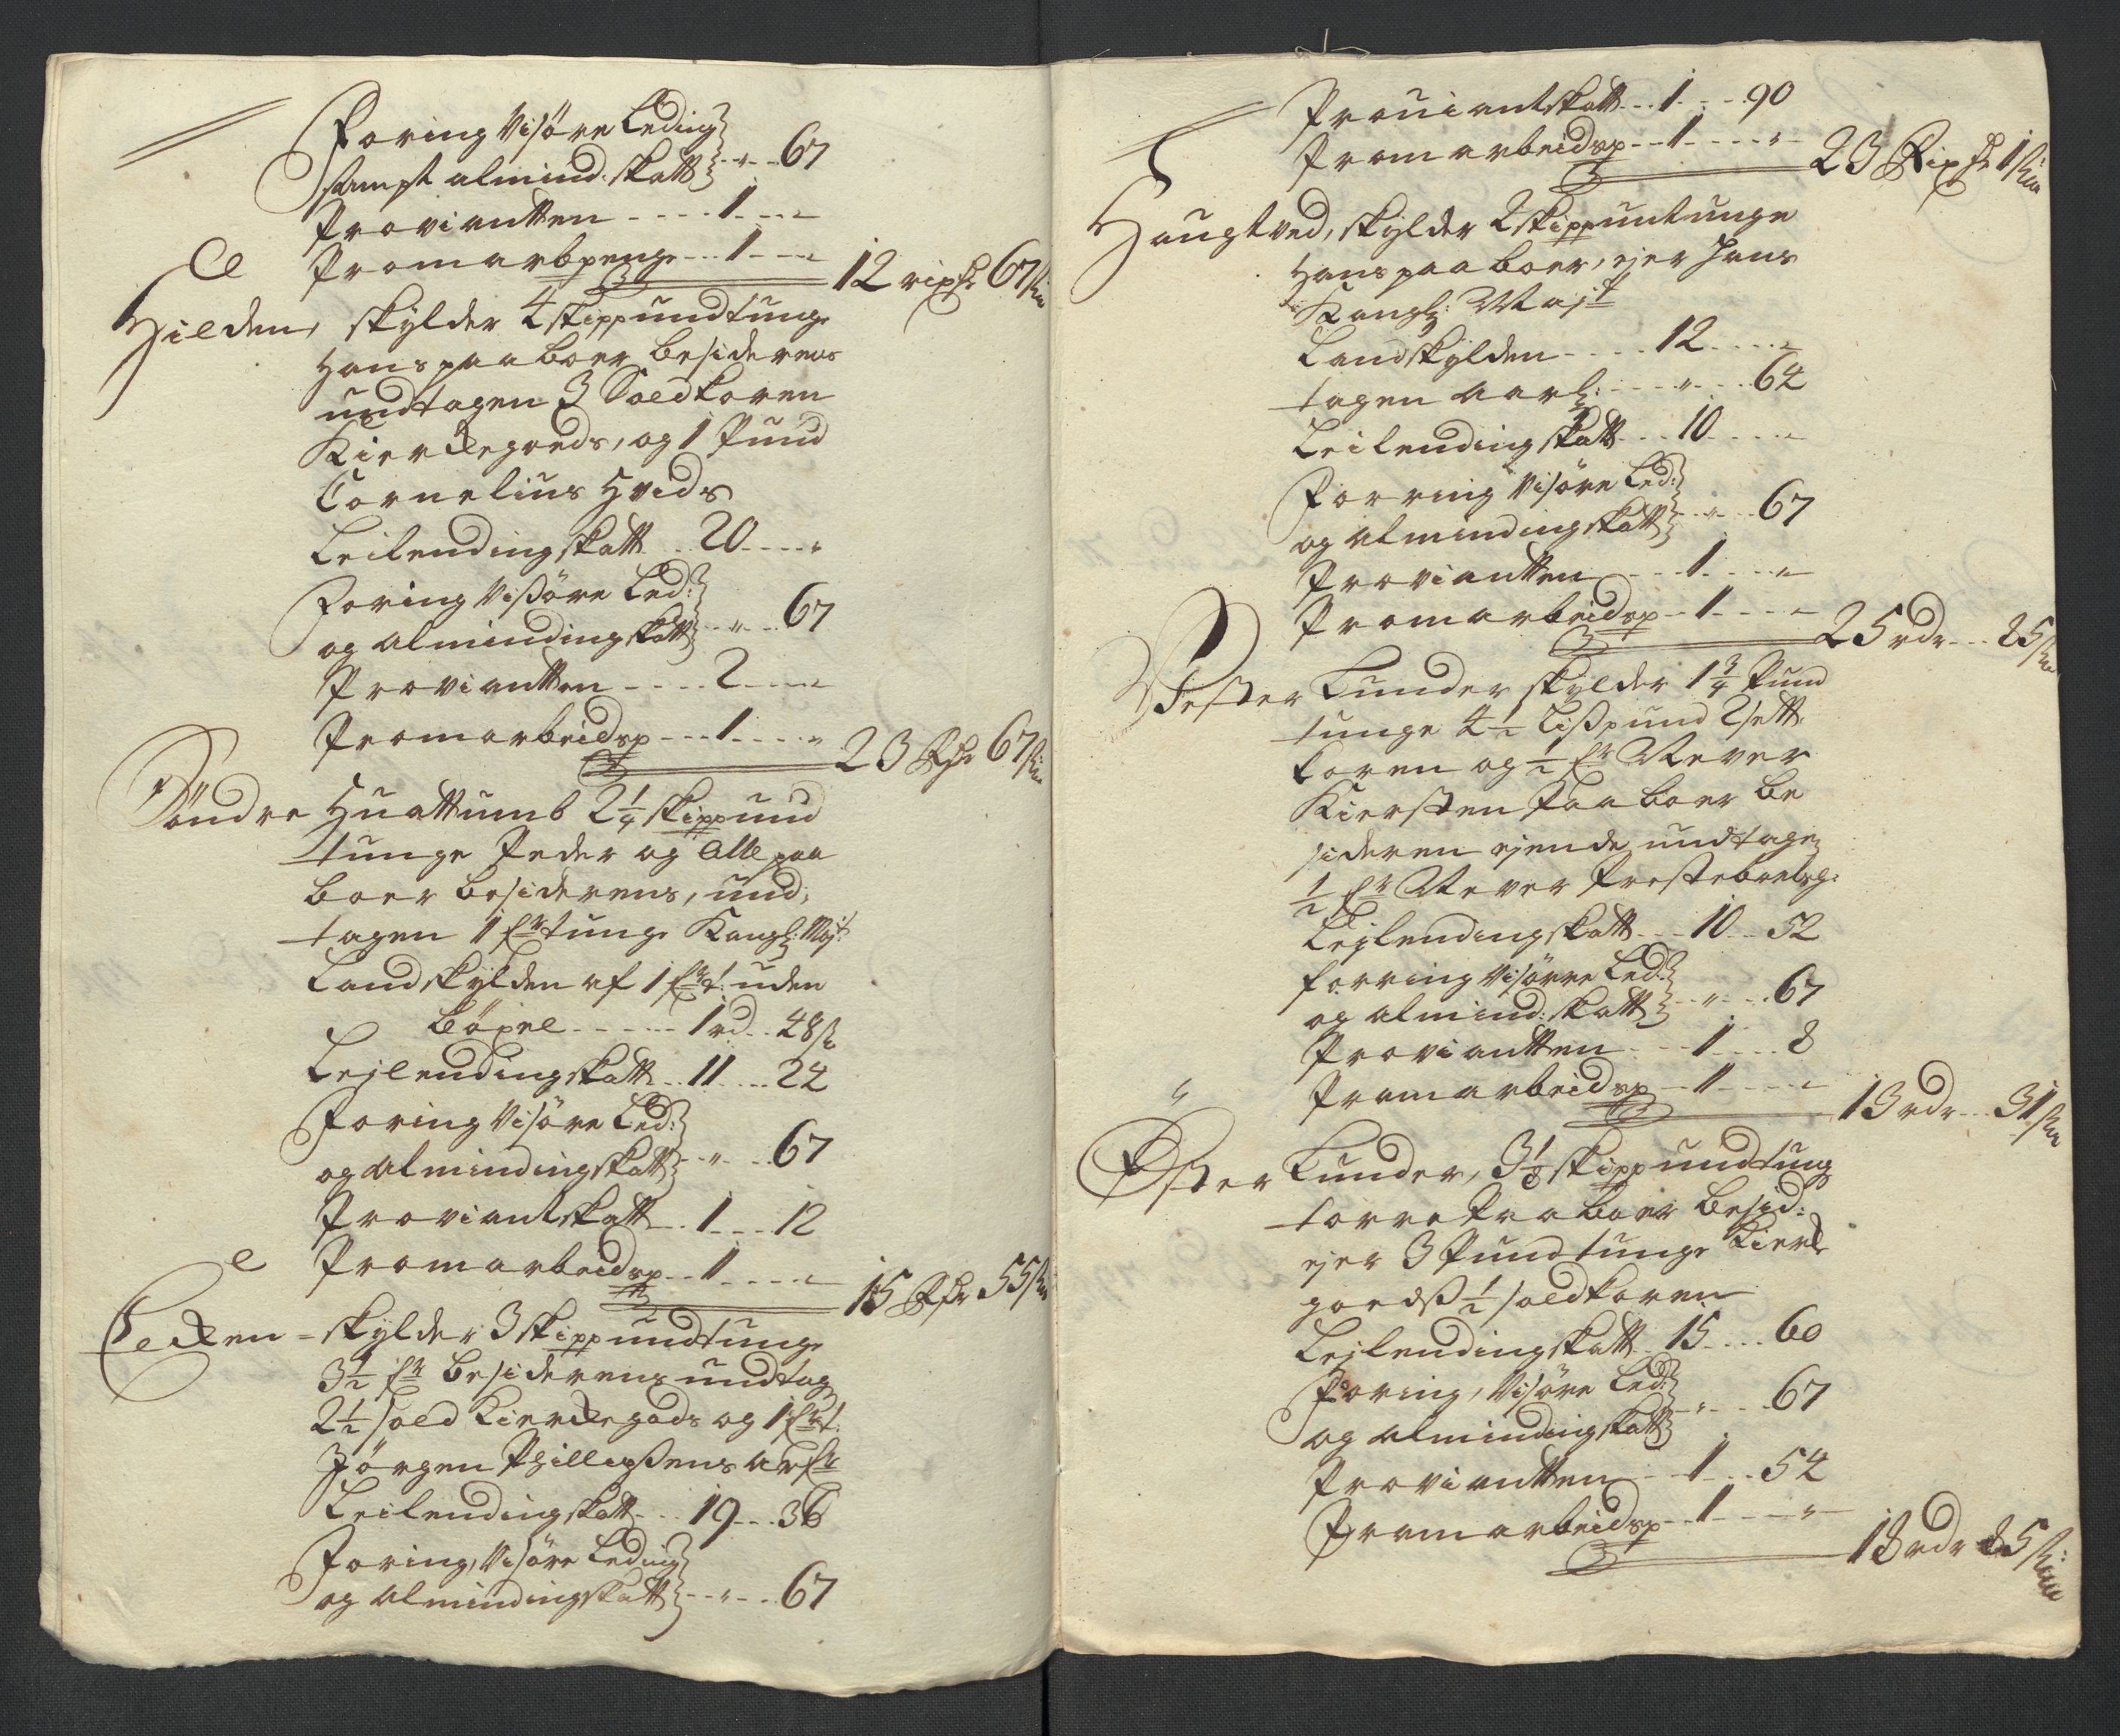 Foring Visøre Leding
sampt almind: skatt - " - 67
Provianten - - - - 1 - - "
Fromarbpenge - - 1 - - "
12 rixdr 67 s
Hilden, skylder 4 skippundtunge
Hans paaboer besiderens
undtagen 3 Soldkoren
Kierchegoeds, og 1 Pund
Cornelius Hvids
Leilendingskatt - - 20 - - - "
Foring Vissøre Led:
og almindingskatt - " - 67
Provianten - - - - 2 - - - "
Fromarbeidsp - - - 1 - - - "
23 Rdr 67 s
Søndre Huattumb 2 1/4 skippund
tunge Peder og Olle paa
boer besiderens, und,
tagen 1 frtunge Kongl: Mayt:
Landskylden af 1 frt: uden
bøxel - - - - - 1 rd - 48 s
Lejlendingskatt - - 11 - - - 24
Foring Visøre Led:
og Almindingskatt - " - 67
Proviantskatt - - 1 - - 12
Fromarbeidsp - - 1 - - - "
15 Rdr 55 s
Lecken - skylder 3 skippundtunge
3 1/2 fr besiderens undtag
2 1/2 sold Kierchegods og 1 frt.
Jørgen Phillipsens
Leilendingskatt - - - 19 - - - 36
Foring, Visøre Leding
og almindingskatt - - " - - 67
Proviantskatt - - 1 - - - 90
Fromarbeidsp - - 1 - - - - "
23 Rixdr 1 s
Haugtved, skylder 2 skippuntunge
Hans paaboer, ejer Hans
Kongl: Mayt
Landskylden - - - - 12 - - - "
tagen aarl: - - - " - - 64
Leilendingskatt - - - 10 - - - "
Forring Visøre Led:
og almindingskatt - " - 67
Provianten - - - 1 - - - "
Fromarbeidsp - - 1 - - - "
25 rdr - - 25 s
Vester Lunder skylder 1 3/4 Pund
tunge 4 1/2 Lisspund 2 sett.
koren og 1/2 fr Rever
Kiersten Paaboer be
sideren ejende undtagen
1/2 fr Rever Prestebolsg:
Lejlendingskatt - - - 10 - - 52
forring Visørre Led:
og almind: skatt - - " - - 67
Provianten - - - 1 - - - 8
Framarbeidsp - - 1 - - - "
13 rdr - - 31 s
Øster Lunder, 3 1/8 skippundtung
torre Paaboer besid:
ejer 3 Pundtunge Kierch
goedss 1/2 soldkoren
Lejlendingskatt - - 15 - - - 60
Foring, Visøre Led:
og almindingskatt - " - - 67
Provianten - - 1 - - - 54
Framarbeidsp - - 1 - - - "
18 rdr 85 s